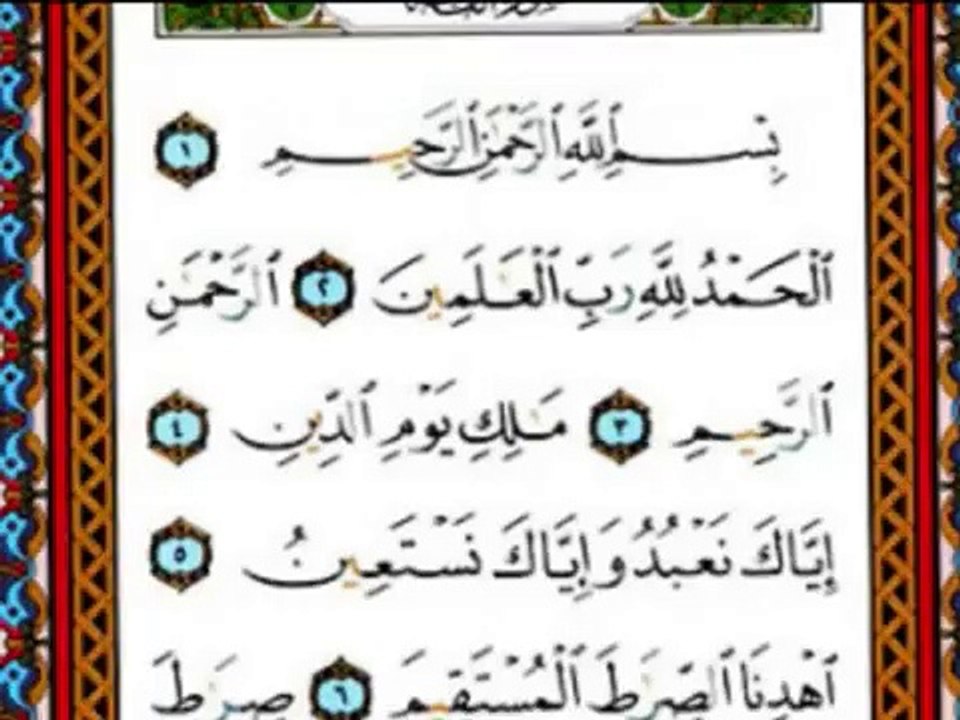 بِسْمِ ٱللَّهِ ٱلرَّحْمَٰنِ ٱلرَّحِيمِ ١
ٱلْحَمْدُ لِلَّهِ رَبِّ ٱلْعَٰلَمِينَ ٢ ٱلرَّحْمَٰنِ
ٱلرَّحِيمِ ٣ مَٰلِكِ يَوْمِ ٱلدِّينِ ٤
إِيَّاكَ نَعْبُدُ وَإِيَّاكَ نَسْتَعِينُ ٥
ٱهْدِنَا ٱلصِّرَٰطَ ٱلْمُسْتَقِيمَ ٦ صِرَٰطَ